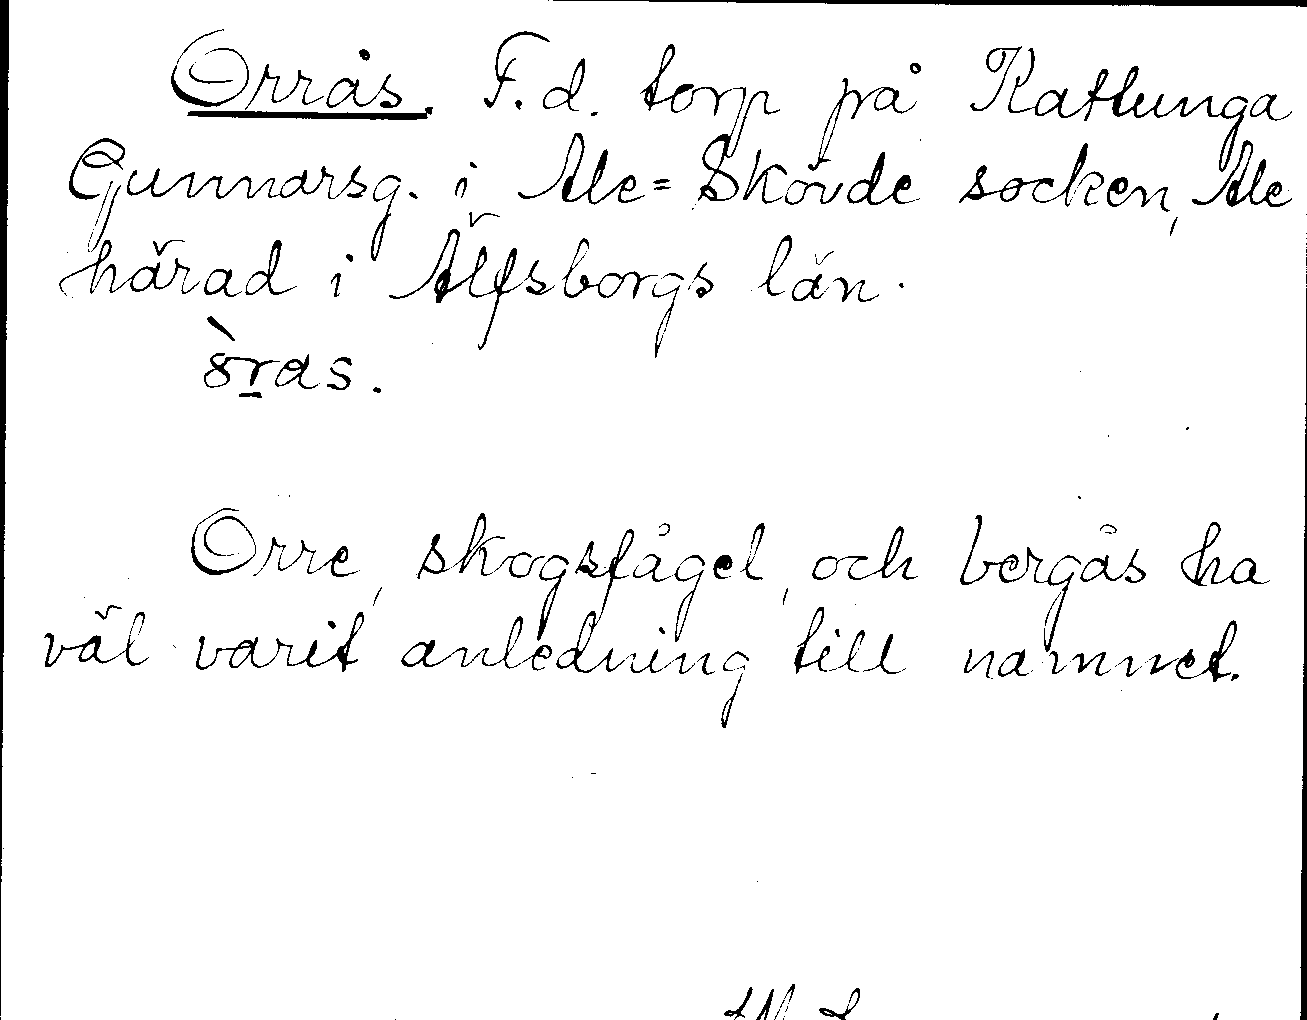 Orrås. F.d. torp på Kattunga
Gunnarsg. i Ale=Skövde socken, Ale
härad i Älfsborgs län.
òras.
Orre, skogsfågel, och bergås ha
väl varit anledning till namnet.